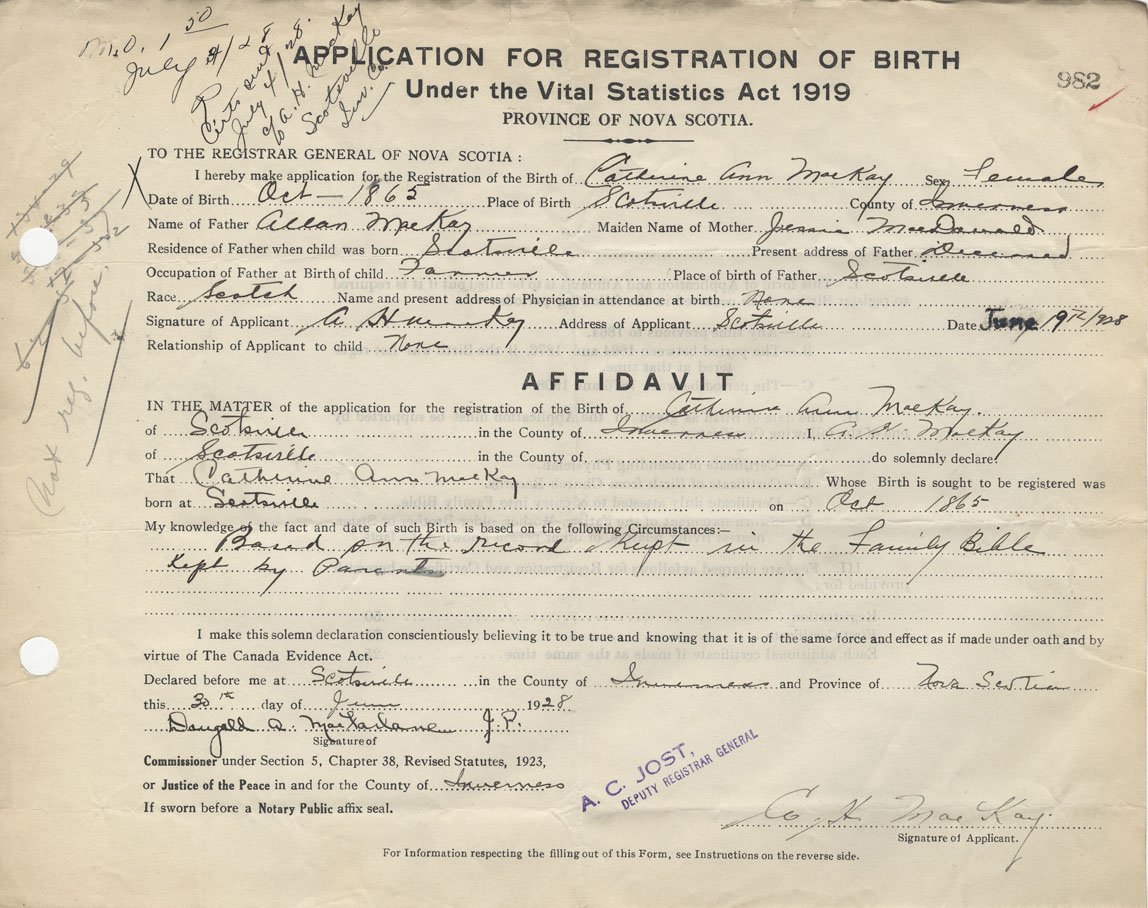 M.O. 1 50
July 4/28
Certs sent
July 4/28
to A. H. MacKay
Scotsville
Inv. Co.
APPLICATION FOR REGISTRATION OF BIRTH
982
Under the Vital Statistics Act 1919
PROVINCE OF NOVA SCOTIA.
TO THE REGISTRAR GENERAL OF NOVA SCOTIA :
I hereby make application for the Registration of the Birth of Catherine Ann MacKay Sex Female
Date of Birth Oct — 1865 Place of Birth Scotsville County of Inverness
Name of Father Allan MacKay Maiden Name of Mother Jessie MacDonald
Residence of Father when child was born Scotsville Present address of Father Deceased
Occupation of Father at Birth of child Farmer Place of birth of Father Scotsville
Race Scotch Name and present address of Physician in attendance at birth None
Signature of Applicant A H MacKay Address of Applicant Scotsville Date June 19th/1928
Relationship of Applicant to child None
not reg. before.
AFFIDAVIT
IN THE MATTER of the application for the registration of the Birth of Catherine Ann MacKay.
of Scotsville in the County of Inverness I, A. H. MacKay
of Scotsville in the County of do solemnly declare:
That Catherine Ann MacKay Whose Birth is sought to be registered was
born at Scotsville on Oct 1865
My knowledge of the fact and date of such Birth is based on the following Circumstances:—
Based on the record Kept in the Family Bible
Kept by Parents
I make this solemn declaration conscientiously believing it to be true and knowing that it is of the same force and effect as if made under oath and by
virtue of The Canada Evidence Act.
Declared before me at Scotsville in the County of Inverness and Province of Nova Scotia
this 30th day of June 1928
Dougald A. MacFarlane J.P.
Signature of
Commissioner under Section 5, Chapter 38, Revised Statutes, 1923,
or Justice of the Peace in and for the County of Inverness
If sworn before a Notary Public affix seal.
A. C. JOST,
DEPUTY REGISTRAR GENERAL
A. H. MacKay
Signature of Applicant.
For Information respecting the filling out of this Form, see Instructions on the reverse side.